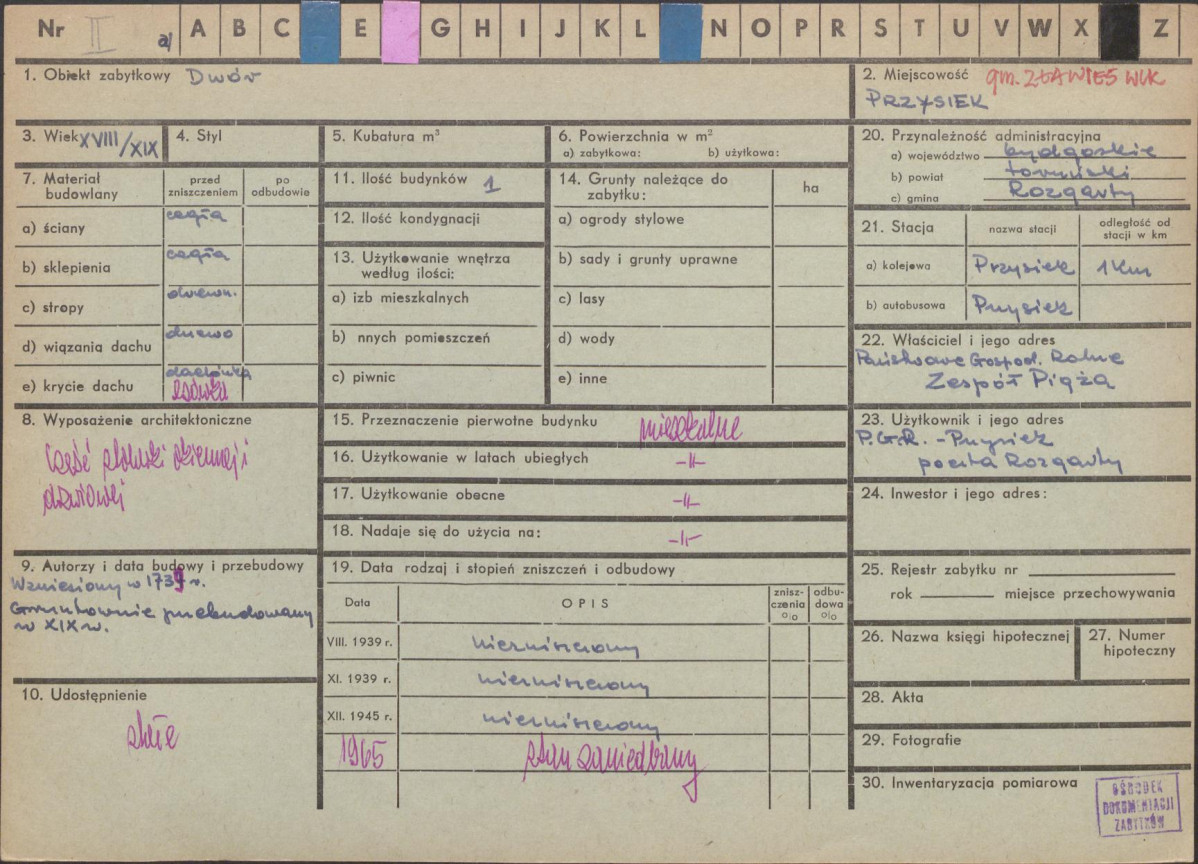 Nr II a) A B C E G H I J K L N O P R S T U V W X Z
1. Obiekt zabytkowy Dwór
2. Miejscowość gm. ZŁAWIEŚ WLK
PRZYSIEK
3. Wiek XVIII/XIX
4. Styl
5. Kubatura m³
6. Powierzchnia w m²
a) zabytkowa: b) użytkowa:
20. Przynależność administracyjna
a) województwo bydgoskie
b) powiat toruński
c) gmina Rozgarty
7. Materiał
budowlany
przed
zniszczeniem
po
odbudowie
a) ściany cegła
b) sklepienia cegła
c) stropy drewn.
d) wiązania dachu drewno
e) krycie dachu dachówka
esówka
11. Ilość budynków 1
12. Ilość kondygnacji
13. Użytkowanie wnętrza
według ilości:
a) izb mieszkalnych
b) nnych pomieszczeń
c) piwnic
14. Grunty należące do
zabytku:
ha
a) ogrody stylowe
b) sady i grunty uprawne
c) lasy
d) wody
e) inne
21. Stacja
nazwa stacji
odległość od
stacji w km
a) kolejowa Przysiek 1 km
b) autobusowa Przysiek
22. Właściciel i jego adres
Państwowe Gospod. Rolne
Zespół Pigża
8. Wyposażenie architektoniczne
Część stolarki okiennej i
drzwiowej
15. Przeznaczenie pierwotne budynku mieszkalne
16. Użytkowanie w latach ubiegłych -II-
17. Użytkowanie obecne -II-
18. Nadaje się do użycia na: -II-
23. Użytkownik i jego adres
P.G.R. - Przysiek
poczta Rozgarty
24. Inwestor i jego adres:
9. Autorzy i data budowy i przebudowy
Wzniesiony w 1739 r.
Gruntownie przebudowany
w XIX w.
10. Udostępnienie
stałe
19. Data rodzaj i stopień zniszczeń i odbudowy
Data
OPIS
znisz-
czenia
%
odbu-
dowa
%
VIII. 1939 r. niezniszczony
XI. 1939 r. niezniszczony
XII. 1945 r. niezniszczony
1965 stan zaniedbany
25. Rejestr zabytku nr
rok miejsce przechowywania
26. Nazwa księgi hipotecznej
27. Numer
hipoteczny
28. Akta
29. Fotografie
30. Inwentaryzacja pomiarowa
OŚRODEK
DOKUMENTACJI
ZABYTKÓW